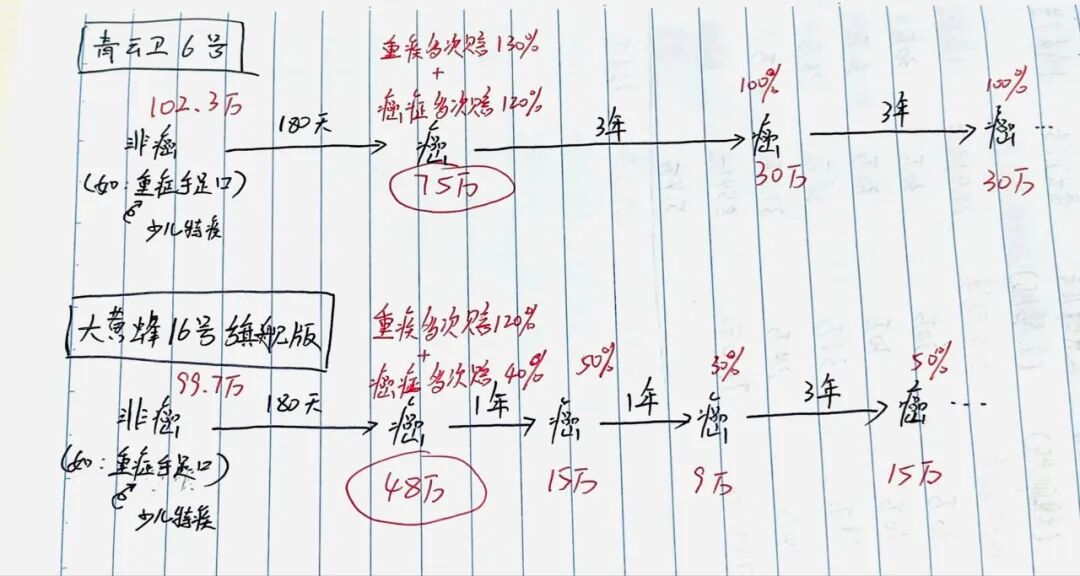 青云卫6号
重疾多次赔130%
+
癌症多次赔120%
102.3万
100%
100%
非癌
180天
癌
3年
癌
3年
癌 …
(如:重症手足口)
少儿特疾
75万
30万
30万
大黄蜂16号旗舰版
重疾多次赔120%
+
癌症多次赔40%
99.7万
50%
30%
50%
非癌
180天
癌
1年
癌
1年
癌
3年
癌 …
(如:重症手足口)
少儿特疾
48万
15万
9万
15万